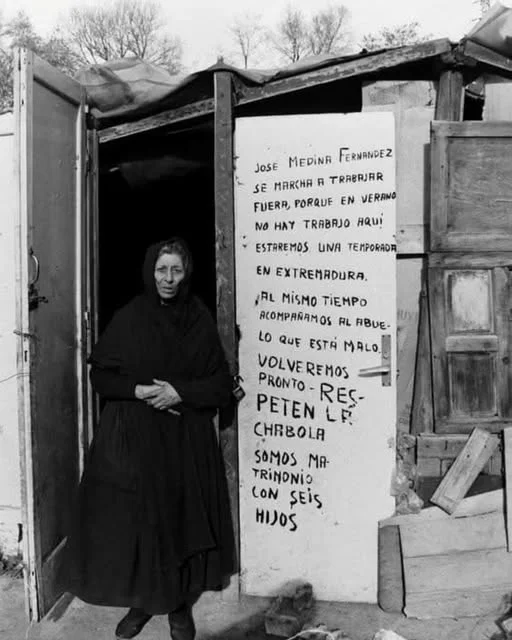 JOSE MEDINA FERNANDEZ
SE MARCHA A TRABAJAR
FUERA, PORQUE EN VERANO
NO HAY TRABAJO AQUÍ
ESTAREMOS UNA TEMPORADA
EN EXTREMADURA.
AL MISMO TIEMPO
ACOMPAÑAMOS AL ABUE-
LO QUE ESTÁ MALO.
VOLVEREMOS
PRONTO - RES-
PETEN LA
CHABOLA
SOMOS MA-
TRIMONIO
CON SEIS
HIJOS